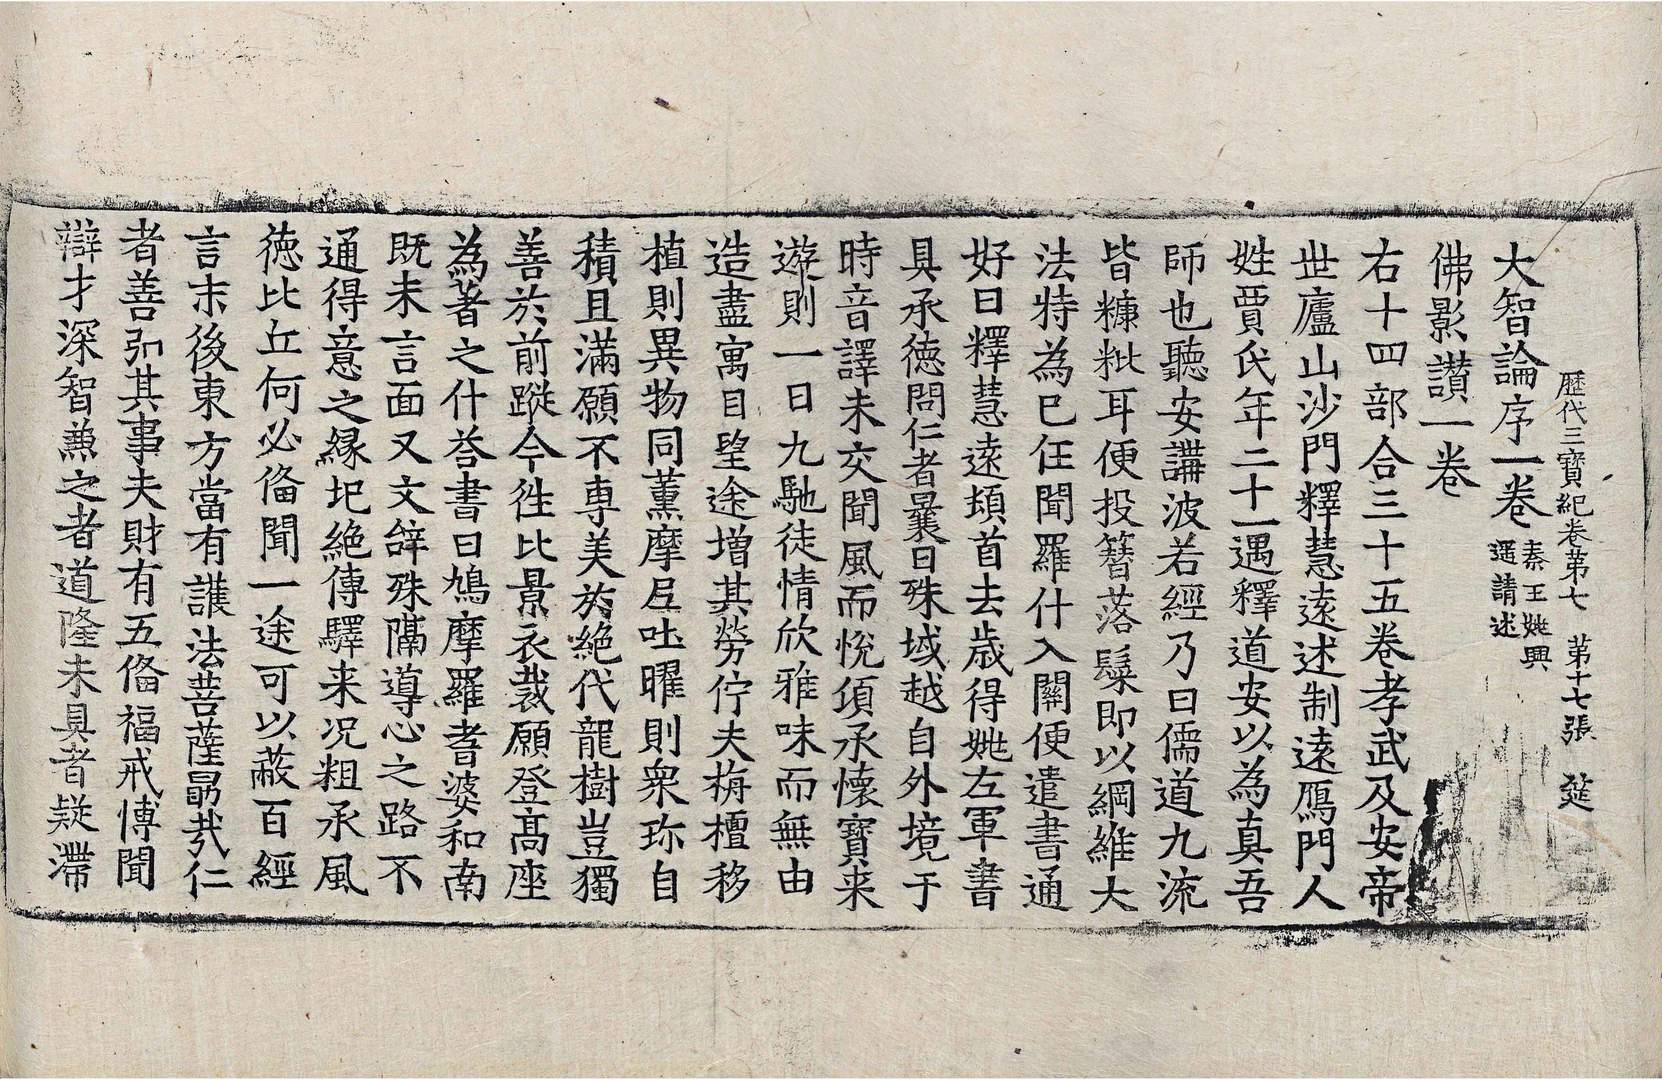 歷代三寶紀卷苐七　苐十七張　筵
大智論序一卷秦王姚興還請述
佛影讃一卷
右十四部合三十五卷孝武及安帝
世廬山沙門釋慧遠述制遠鴈門人
姓賈氏年二十一遇釋道安以為真吾
師也聽安講波若經乃曰儒道九流
皆糠粃耳便投簪落髮即以綱維大
法特為已任聞羅什入關便遣書通
好曰釋慧遠頓首去歲得姚左軍書
具承德問仁者曩日殊域越自外境于
時音譯未交聞風而悅頃承懷寶来
遊則一日九馳徒情欣雅味而無由
造盡寓目望途增其勞佇夫栴檀移
植則異物同薰摩尼吐曜則衆珎自
積且滿願不專美於絕代龍樹豈獨
善於前蹤今徃比景衣裁願登髙座
為著之什荅書曰鳩摩羅耆婆和南
既未言面又文辝殊隔導心之路不
通得意之緣圯絕傳驛来況粗承風
德比丘何必俻聞一途可以蔽百經
言末後東方當有護法菩薩勗㢤仁
者善弘其事夫財有五俻福戒博聞
辯才深智兼之者道隆未具者疑滯